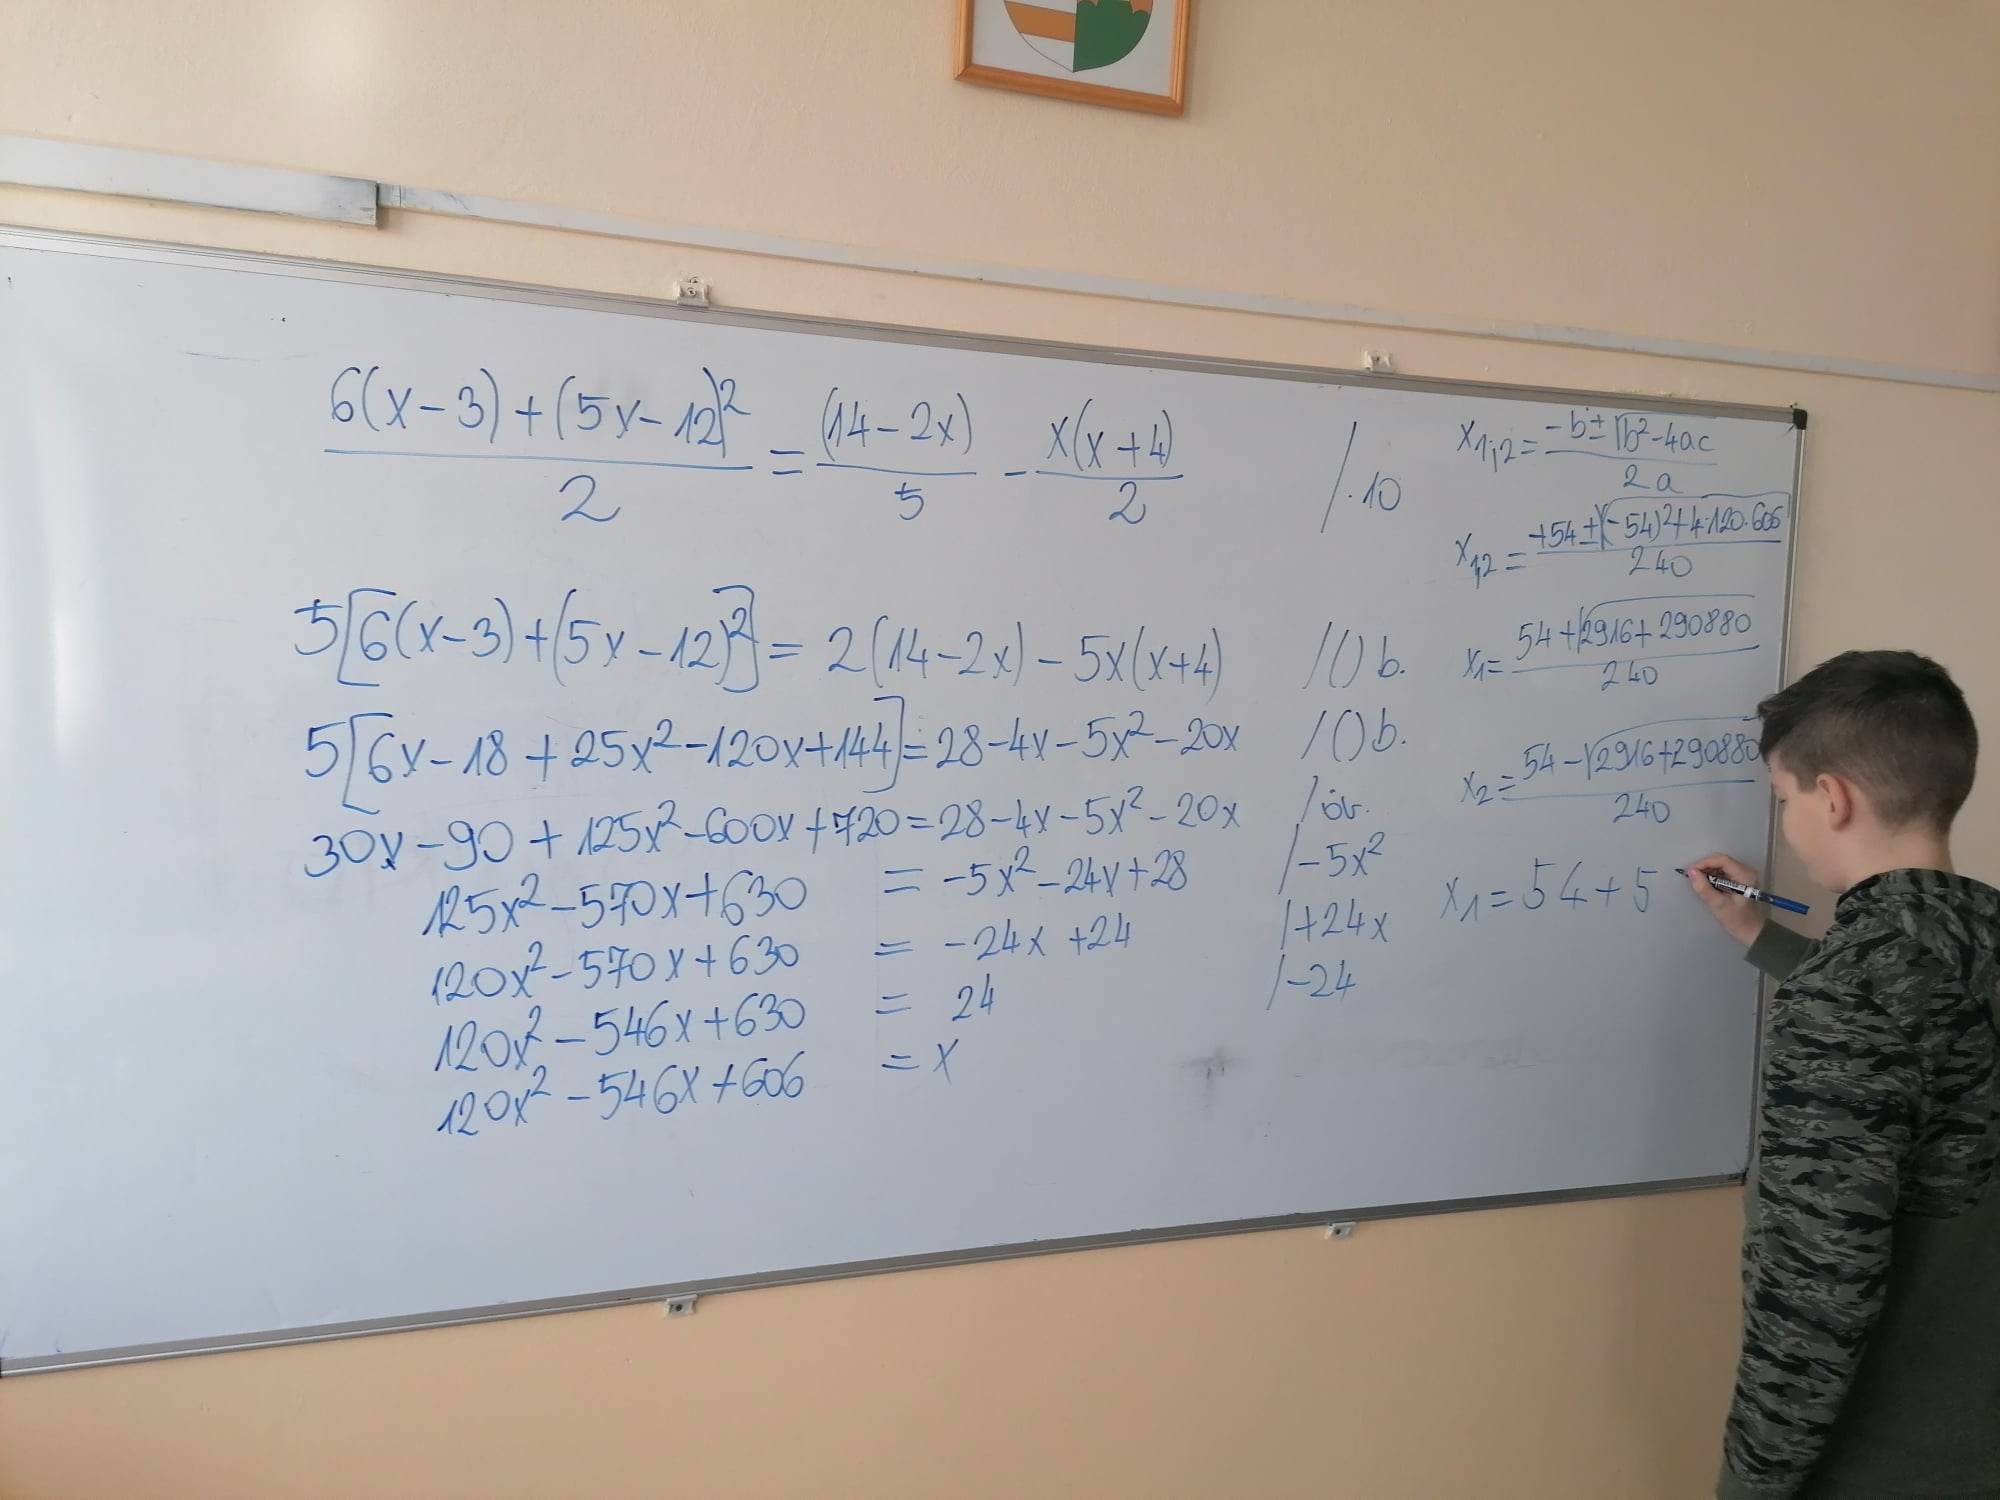 6(x-3)+(5x-12)² / 2 = (14-2x) / 5 - x(x+4) / 2 /·10
5[6(x-3)+(5x-12)²] = 2(14-2x)-5x(x+4) /() b.
5[6x-18+25x²-120x+144] = 28-4x-5x²-20x /() b.
30x-90+125x²-600x+720 = 28-4x-5x²-20x /öv.
125x²-570x+630 = -5x²-24x+28 /-5x²
120x²-570x+630 = -24x+24 /+24x
120x²-546x+630 = 24 /-24
120x²-546x+606 = x
x1;2 = -b±√b²-4ac / 2a
x1,2 = +54±√(-54)²+4·120·606 / 240
x1 = 54+√2916+290880 / 240
x2 = 54-√2916+290880 / 240
x1 = 54+5